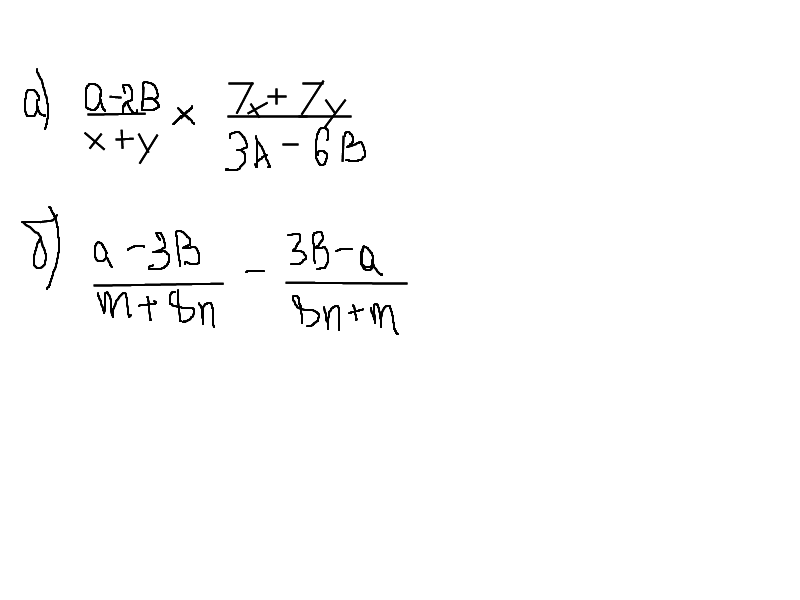 а) a-2B/x+y × 7x+7y/3A-6B
б) a-3B/m+8n - 3B-a/8n+m